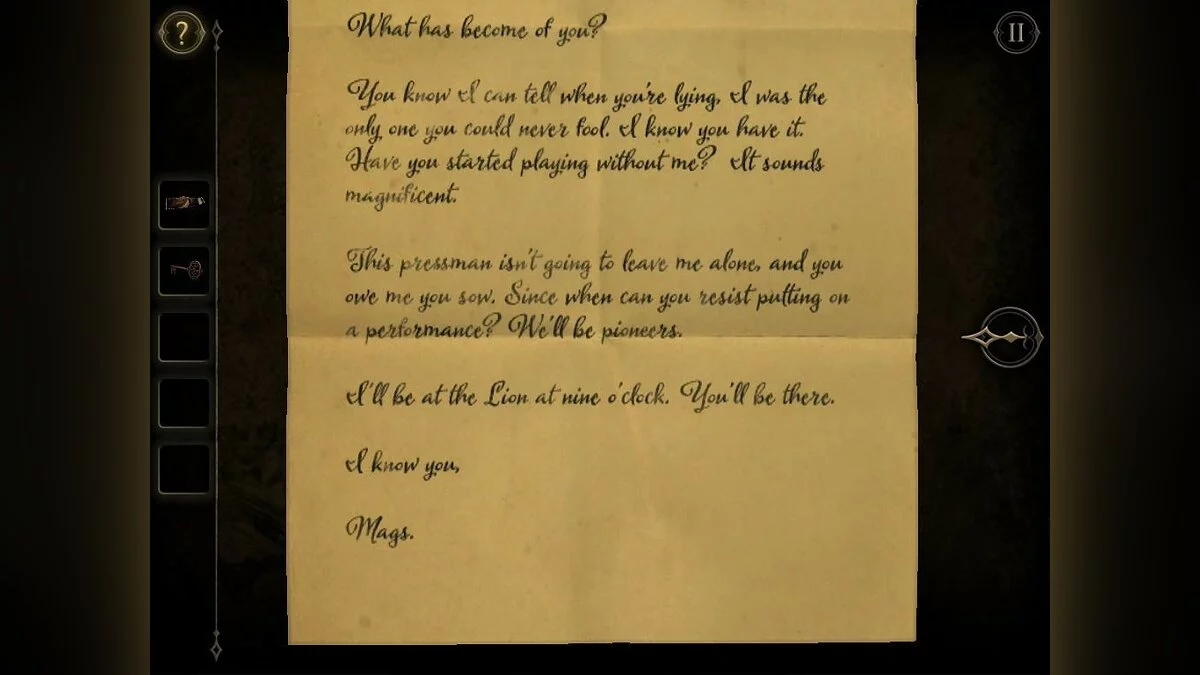 ?
II
What has become of you?
You know I can tell when you're lying, I was the
only one you could never fool. I know you have it.
Have you started playing without me? It sounds
magnificent.
This pressman isn't going to leave me alone, and you
owe me you sow. Since when can you resist putting on
a performance? We'll be pioneers.
I'll be at the Lion at nine o'clock. You'll be there.
I know you,
Mags.